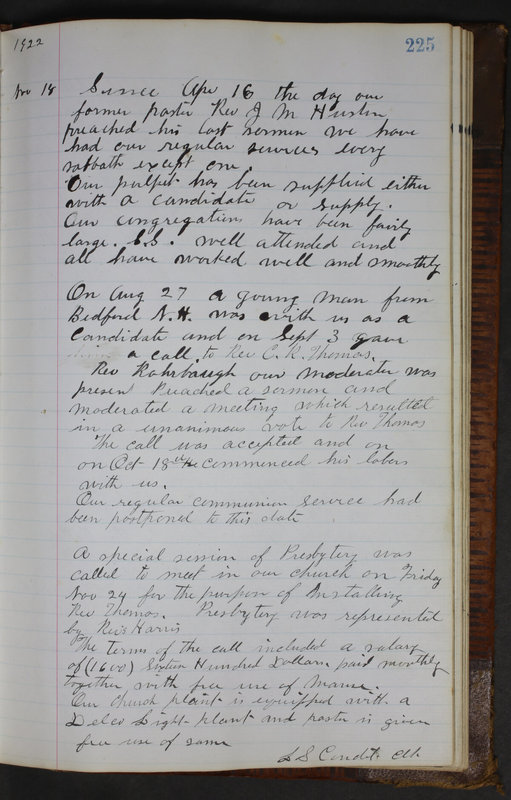 1922
225
Nov 18 Since Apr 16 the day our
former pastor Rev J M Huston
preached his last sermon we have
had our regular services every
sabbath except one.
Our pulpit has been supplied either
with a candidate or supply.
Our congregations have been fairly
large. S.S. well attended and
all have worked well and smoothly
On Aug 27 a young man from
Bedford N.H. was with us as a
Candidate and on Sept 3 gave
a call to Rev C. R. Thomas.
Rev Rohrbaugh our moderator was
present Preached a sermon and
moderated a meeting which resulted
in a unanimous vote to Rev Thomas
The call was accepted and on
on Oct 18th he commenced his labors
with us.
Our regular communion service had
been postponed to this date
A special session of Presbytery was
called to meet in our church on Friday
Nov 24 for the purpose of Installing
Rev Thomas. Presbytery was represented
by Revs Harris
The terms of the call included a salary
of (1600) Sixteen Hundred Dollars. paid monthly
together with free use of Manse.
Our church plant is equipped with a
Delco Light plant and pastor is given
free use of same
S S Condit Clk